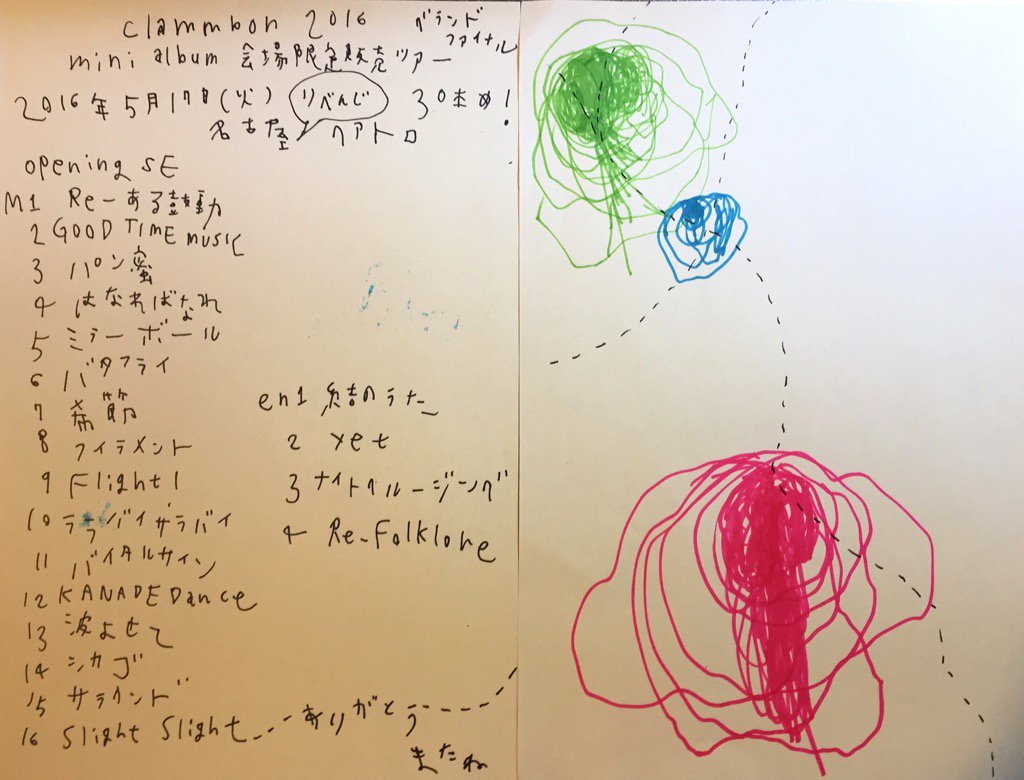 clammbon 2016 グランドファイナル
mini album 会場限定販売ツアー
2016年5月17日(火) りべんじ 30本め!
名古屋 ペアトロ
opening SE
M1 Re-ある鼓動
2 GOOD TIME MUSIC
3 パン蜜
4 はなればなれ
5 ミラーボール
6 バタフライ
7 希節
8 フィラメント
9 Flight!
10 ララバイサラバイ
11 バイタルサイン
12 KANADE Dance
13 波よせて
14 シカゴ
15 サラウンド
16 Slight Slight ありがとう
またね
en1 結のうた
2 yet
3 ナイトクルージング
4 Re-Folklore